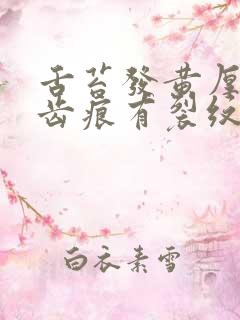 舌苔發黄厚
齿痕有裂纹
白衣素雪